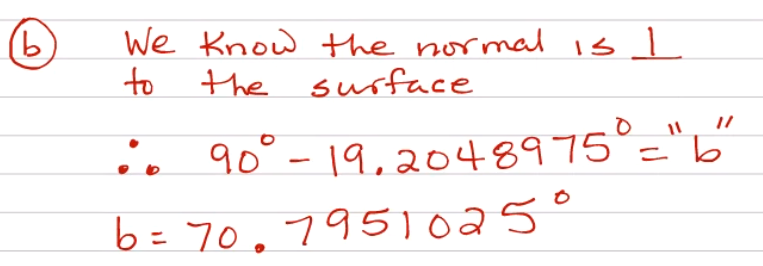 (b) We know the normal is ⊥
to the surface
∴ 90° - 19.2048975° = "b"
b = 70.7951025°